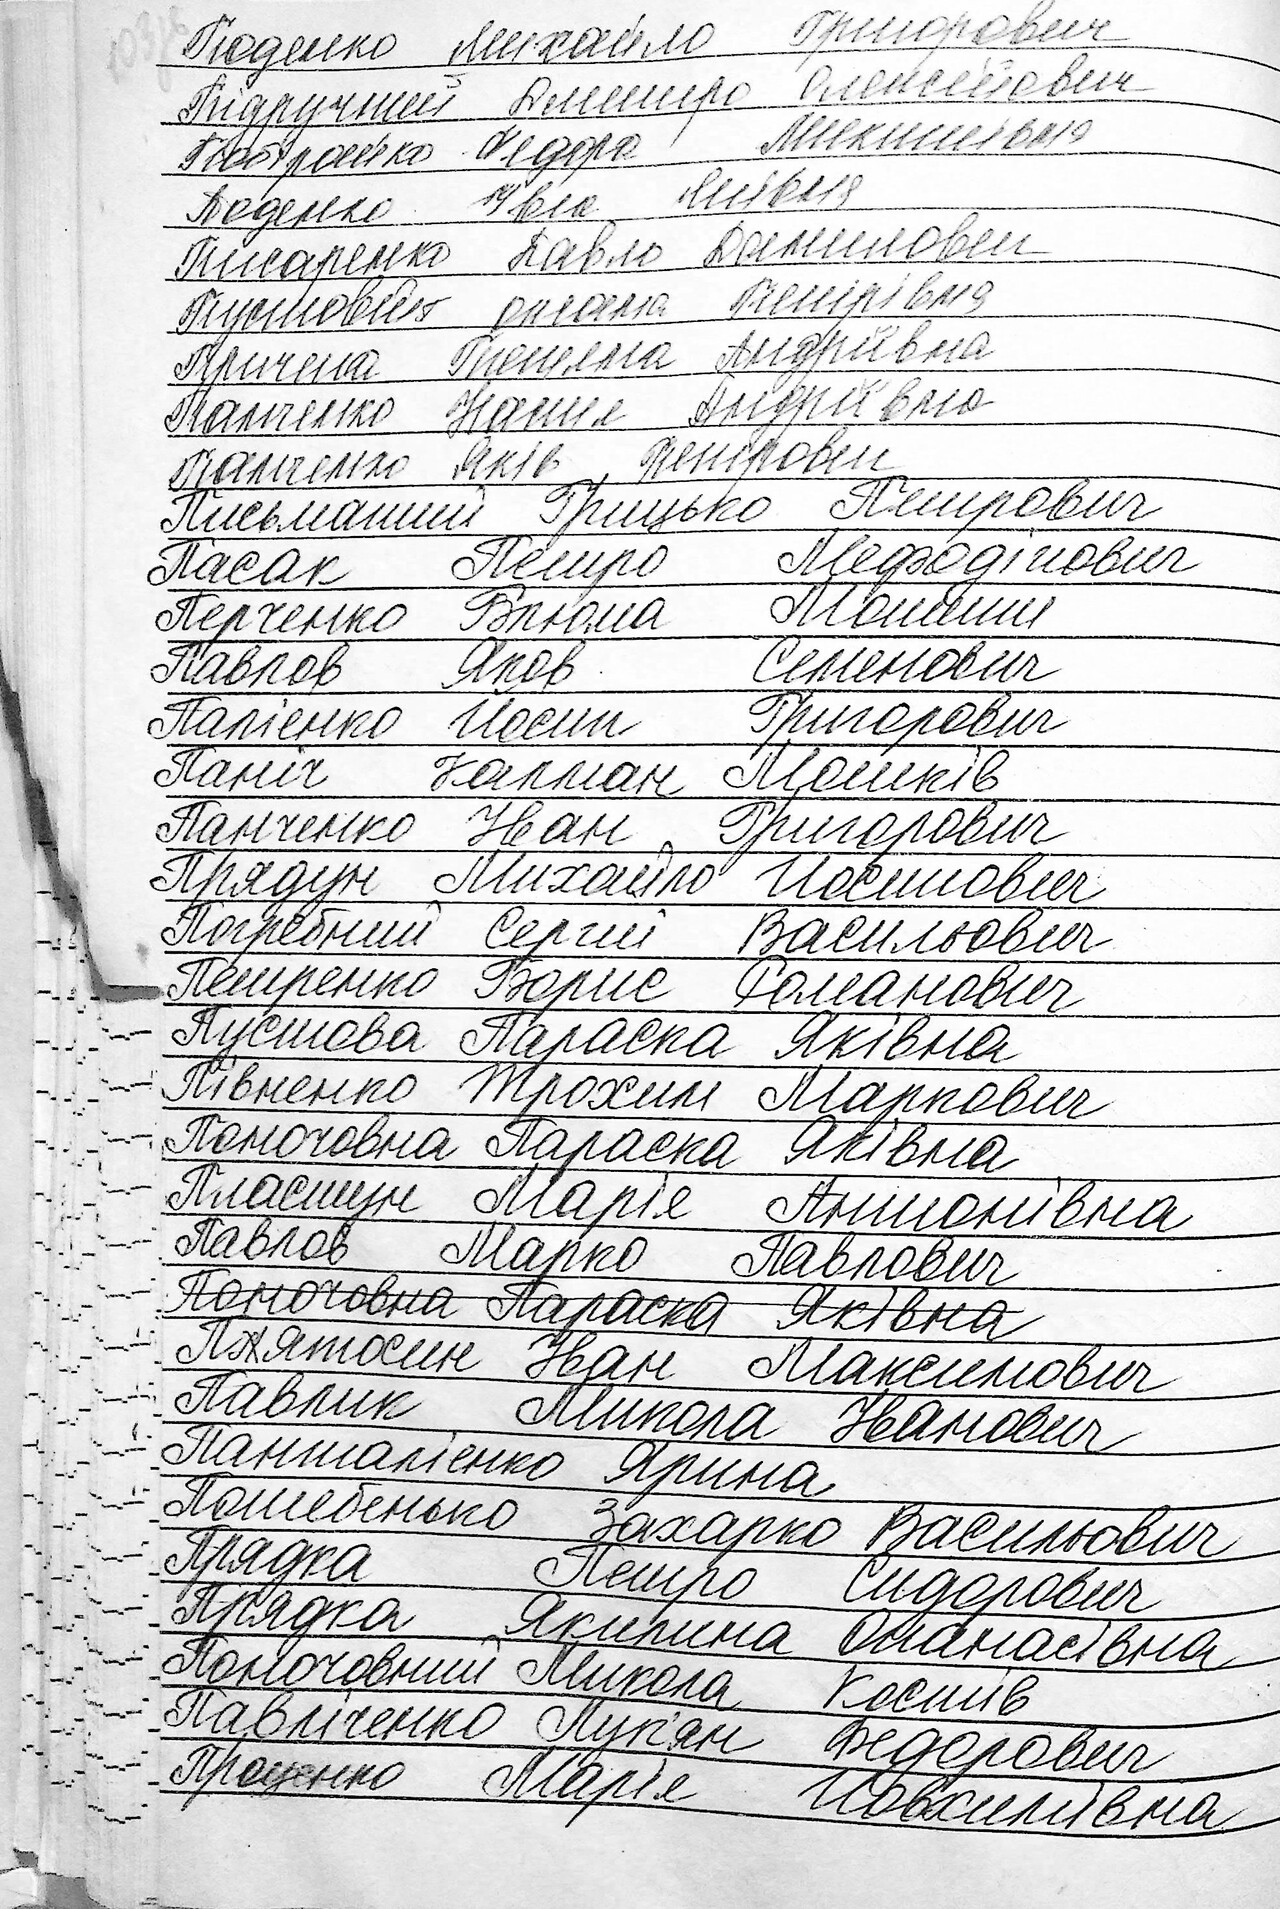 Михайло Григорович
Підручний Дмитро Олексійович
Федора Микитівна
Писаренко Павло Данилович
Пустовійт оксана Петрівна
Андріївна
Панченко Настя Андріївна
Панченко Яків Петрович
Письманний Грицько Петрович
Пасак Петро Мефодійович
Перченко Врюма
Павлов Яков Семенович
Палієнко Йосип Григорович
Паніч Калман Мошків
Панченко Іван Григорович
Прядун Михайло Йосипович
Погребний Сергій Васильович
Петренко Борис Романович
Пустова Параска Яківна
Півненко Трохим Маркович
Помочовна Параска Яківна
Пластун Марія Антонівна
Павлов Марко Павлович
Помочовна Параска Яківна
Іван Максимович
Павлик Микола Іванович
Панталієнко Ярина
Потебенько Захарко Васильович
Прядка Петро Сидорович
Прядка Якилина Опанасівна
Помочовний Микола Костів
Павліченко Лук'ян Федорович
Проценко Марія Йовхимівна